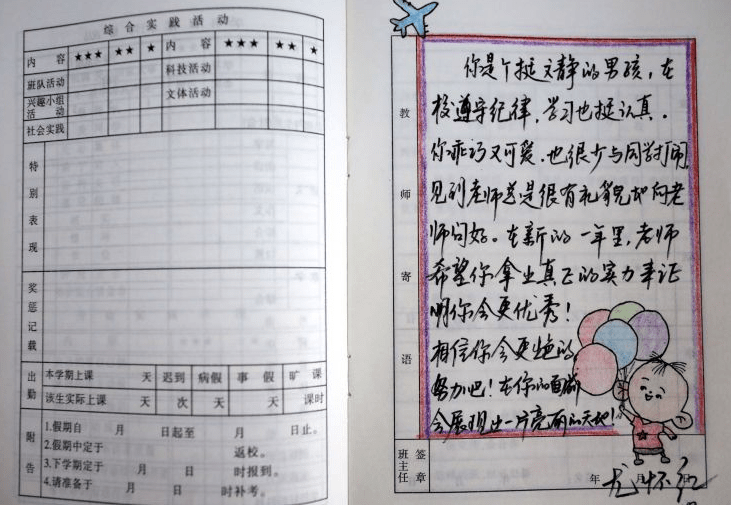 综合实践活动
内容 ★★★ ★★ ★ 内容 ★★★ ★★ ★
班队活动 科技活动
兴趣小组活动 文体活动
社会实践
特别表现
奖惩记载
出勤
本学期上课 天 迟到 病假 事假 旷课
该生实际上课 天 次 天 天 课时
附告
1.假期自 月 日起至 月 日止。
2.假期中定于 返校。
3.下学期定于 月 日 时报到。
4.请准备于 月 日 时补考。
教师寄语
你是个挺文静的男孩，在
校遵守纪律，学习也挺认真。
你乖巧又可爱，也很少与同学打闹，
见到老师总是很有礼貌地向老
师问好。在新的一年里，老师
希望你拿出真正的实力来证
明你会更优秀！
相信你会更出色的
努力吧！在你的面前
会展现出一片亮丽的天地！
班主任签章
年 月 日